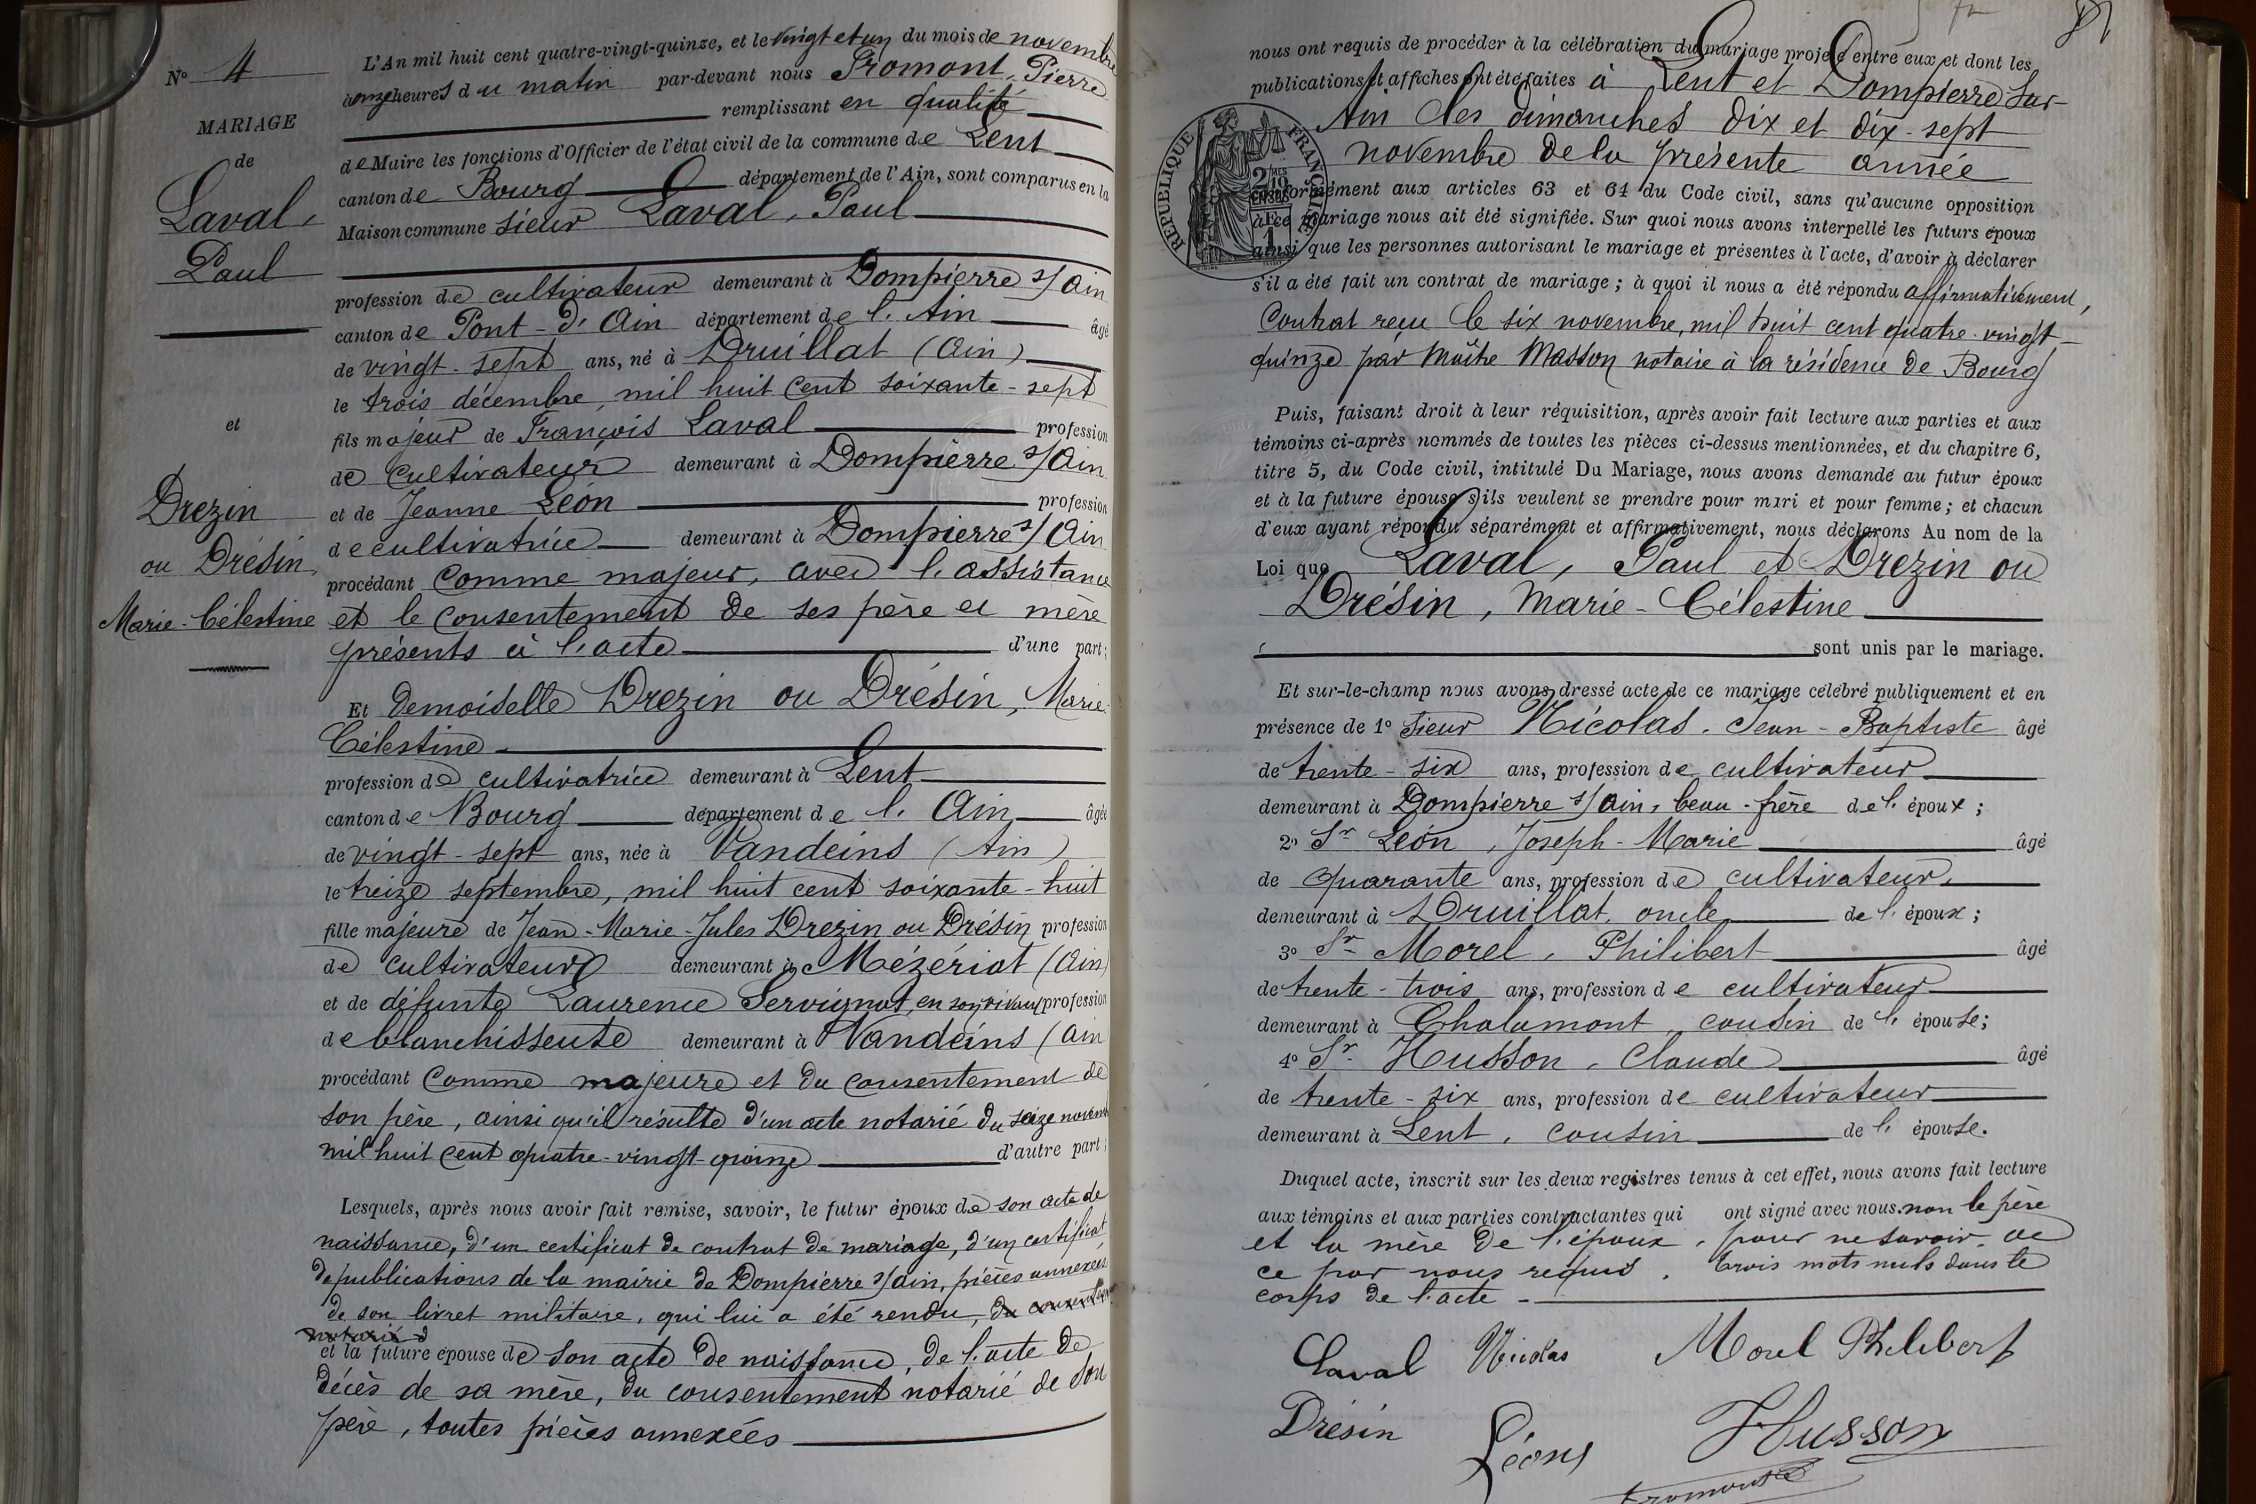 N° 4
MARIAGE
de
Laval,
Paul
et
Drezin
ou Drésin,
Marie-Célestine
L'An mil huit cent quatre-vingt-quinze, et le vingt et un du mois de novembre
à onze heures du matin par-devant nous Fromont, Pierre
remplissant en qualité
de Maire les fonctions d'Officier de l'état civil de la commune de Lent
canton de Bourg département de l'Ain, sont comparus en la
Maison commune sieur Laval, Paul
profession de cultivateur demeurant à Dompierre s/ Ain
canton de Pont-d'Ain département de l'Ain âgé
de vingt-sept ans, né à Druillat (Ain)
le trois décembre, mil huit cent soixante-sept
fils majeur de François Laval profession
de cultivateur demeurant à Dompierre s/ Ain
et de Jeanne Léon profession
de cultivatrice demeurant à Dompierre s/ Ain
procédant comme majeur, avec l'assistance
et le consentement de ses père et mère
présents à l'acte d'une part;
Et demoiselle Drezin ou Drésin, Marie-
Célestine
profession de cultivatrice demeurant à Lent
canton de Bourg département de l'Ain âgée
de vingt-sept ans, née à Vandeins (Ain)
le treize septembre, mil huit cent soixante-huit
fille majeure de Jean-Marie-Jules Drezin ou Drésin profession
de cultivateur demeurant à Mézériat (Ain)
et de défunte Laurence Servignat, en son vivant profession
de blanchisseuse demeurant à Vandeins (Ain
procédant comme majeure et du consentement de
son père, ainsi qu'il résulte d'un acte notarié du seize novemb
mil huit cent quatre-vingt-quinze d'autre part;
Lesquels, après nous avoir fait remise, savoir, le futur époux de son acte de
naissance, d'un certificat de contrat de mariage, d'un certificat
de publications de la mairie de Dompierre s/ Ain, pièces annexées,
de son livret militaire, qui lui a été rendu, du consentement
notarié d
et la future épouse de son acte de naissance, de l'acte de
décès de sa mère, du consentement notarié de son
père, toutes pièces annexées
nous ont requis de procéder à la célébration du mariage projeté entre eux et dont les
publications et affiches ont été faites à Lent et Dompierre sur-
Ain les dimanches dix et dix-sept
novembre de la présente année
conformément aux articles 63 et 64 du Code civil, sans qu'aucune opposition
à ce mariage nous ait été signifiée. Sur quoi nous avons interpellé les futurs époux
ainsi que les personnes autorisant le mariage et présentes à l'acte, d'avoir à déclarer
s'il a été fait un contrat de mariage; à quoi il nous a été répondu affirmativement,
Contrat reçu le six novembre, mil huit cent quatre-vingt-
quinze par Maître Masson notaire à la résidence de Bourg
REPUBLIQUE FRANÇAISE
Puis, faisant droit à leur réquisition, après avoir fait lecture aux parties et aux
témoins ci-après nommés de toutes les pièces ci-dessus mentionnées, et du chapitre 6,
titre 5, du Code civil, intitulé Du Mariage, nous avons demandé au futur époux
et à la future épouse s'ils veulent se prendre pour mari et pour femme; et chacun
d'eux ayant répondu séparément et affirmativement, nous déclarons Au nom de la
Loi que Laval, Paul et Drezin ou
Drésin, Marie-Célestine
sont unis par le mariage.
Et sur-le-champ nous avons dressé acte de ce mariage célébré publiquement et en
présence de 1° sieur Nicolas, Jean-Baptiste âgé
de trente-six ans, profession de cultivateur
demeurant à Dompierre s/ Ain, beau-frère de l'époux;
2° Sr Léon, Joseph-Marie âgé
de quarante ans, profession de cultivateur,
demeurant à Druillat, oncle de l'époux;
3° Sr Morel, Philibert âgé
de trente-trois ans, profession de cultivateur
demeurant à Chalamont, cousin de l'épouse;
4° Sr Husson, Claude âgé
de trente-six ans, profession de cultivateur
demeurant à Lent, cousin de l'épouse.
Duquel acte, inscrit sur les deux registres tenus à cet effet, nous avons fait lecture
aux témoins et aux parties contractantes qui ont signé avec nous, non le père
et la mère de l'époux, pour ne savoir, de
ce par nous requis. Trois mots nuls dans le
corps de l'acte
Laval Nicolas Morel Philibert
Drésin Léon Husson
Fromont